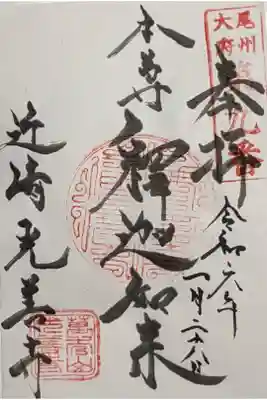 尾州
大府
九番
奉拝
令和六年
一月二十八日
本尊 釋迦如来
近崎 光善寺